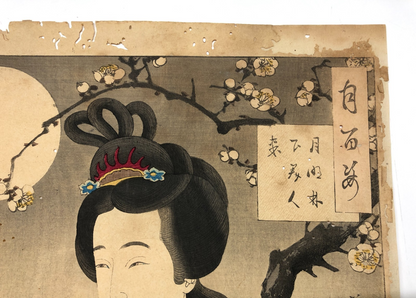 月百姿
月明林
下美人
来